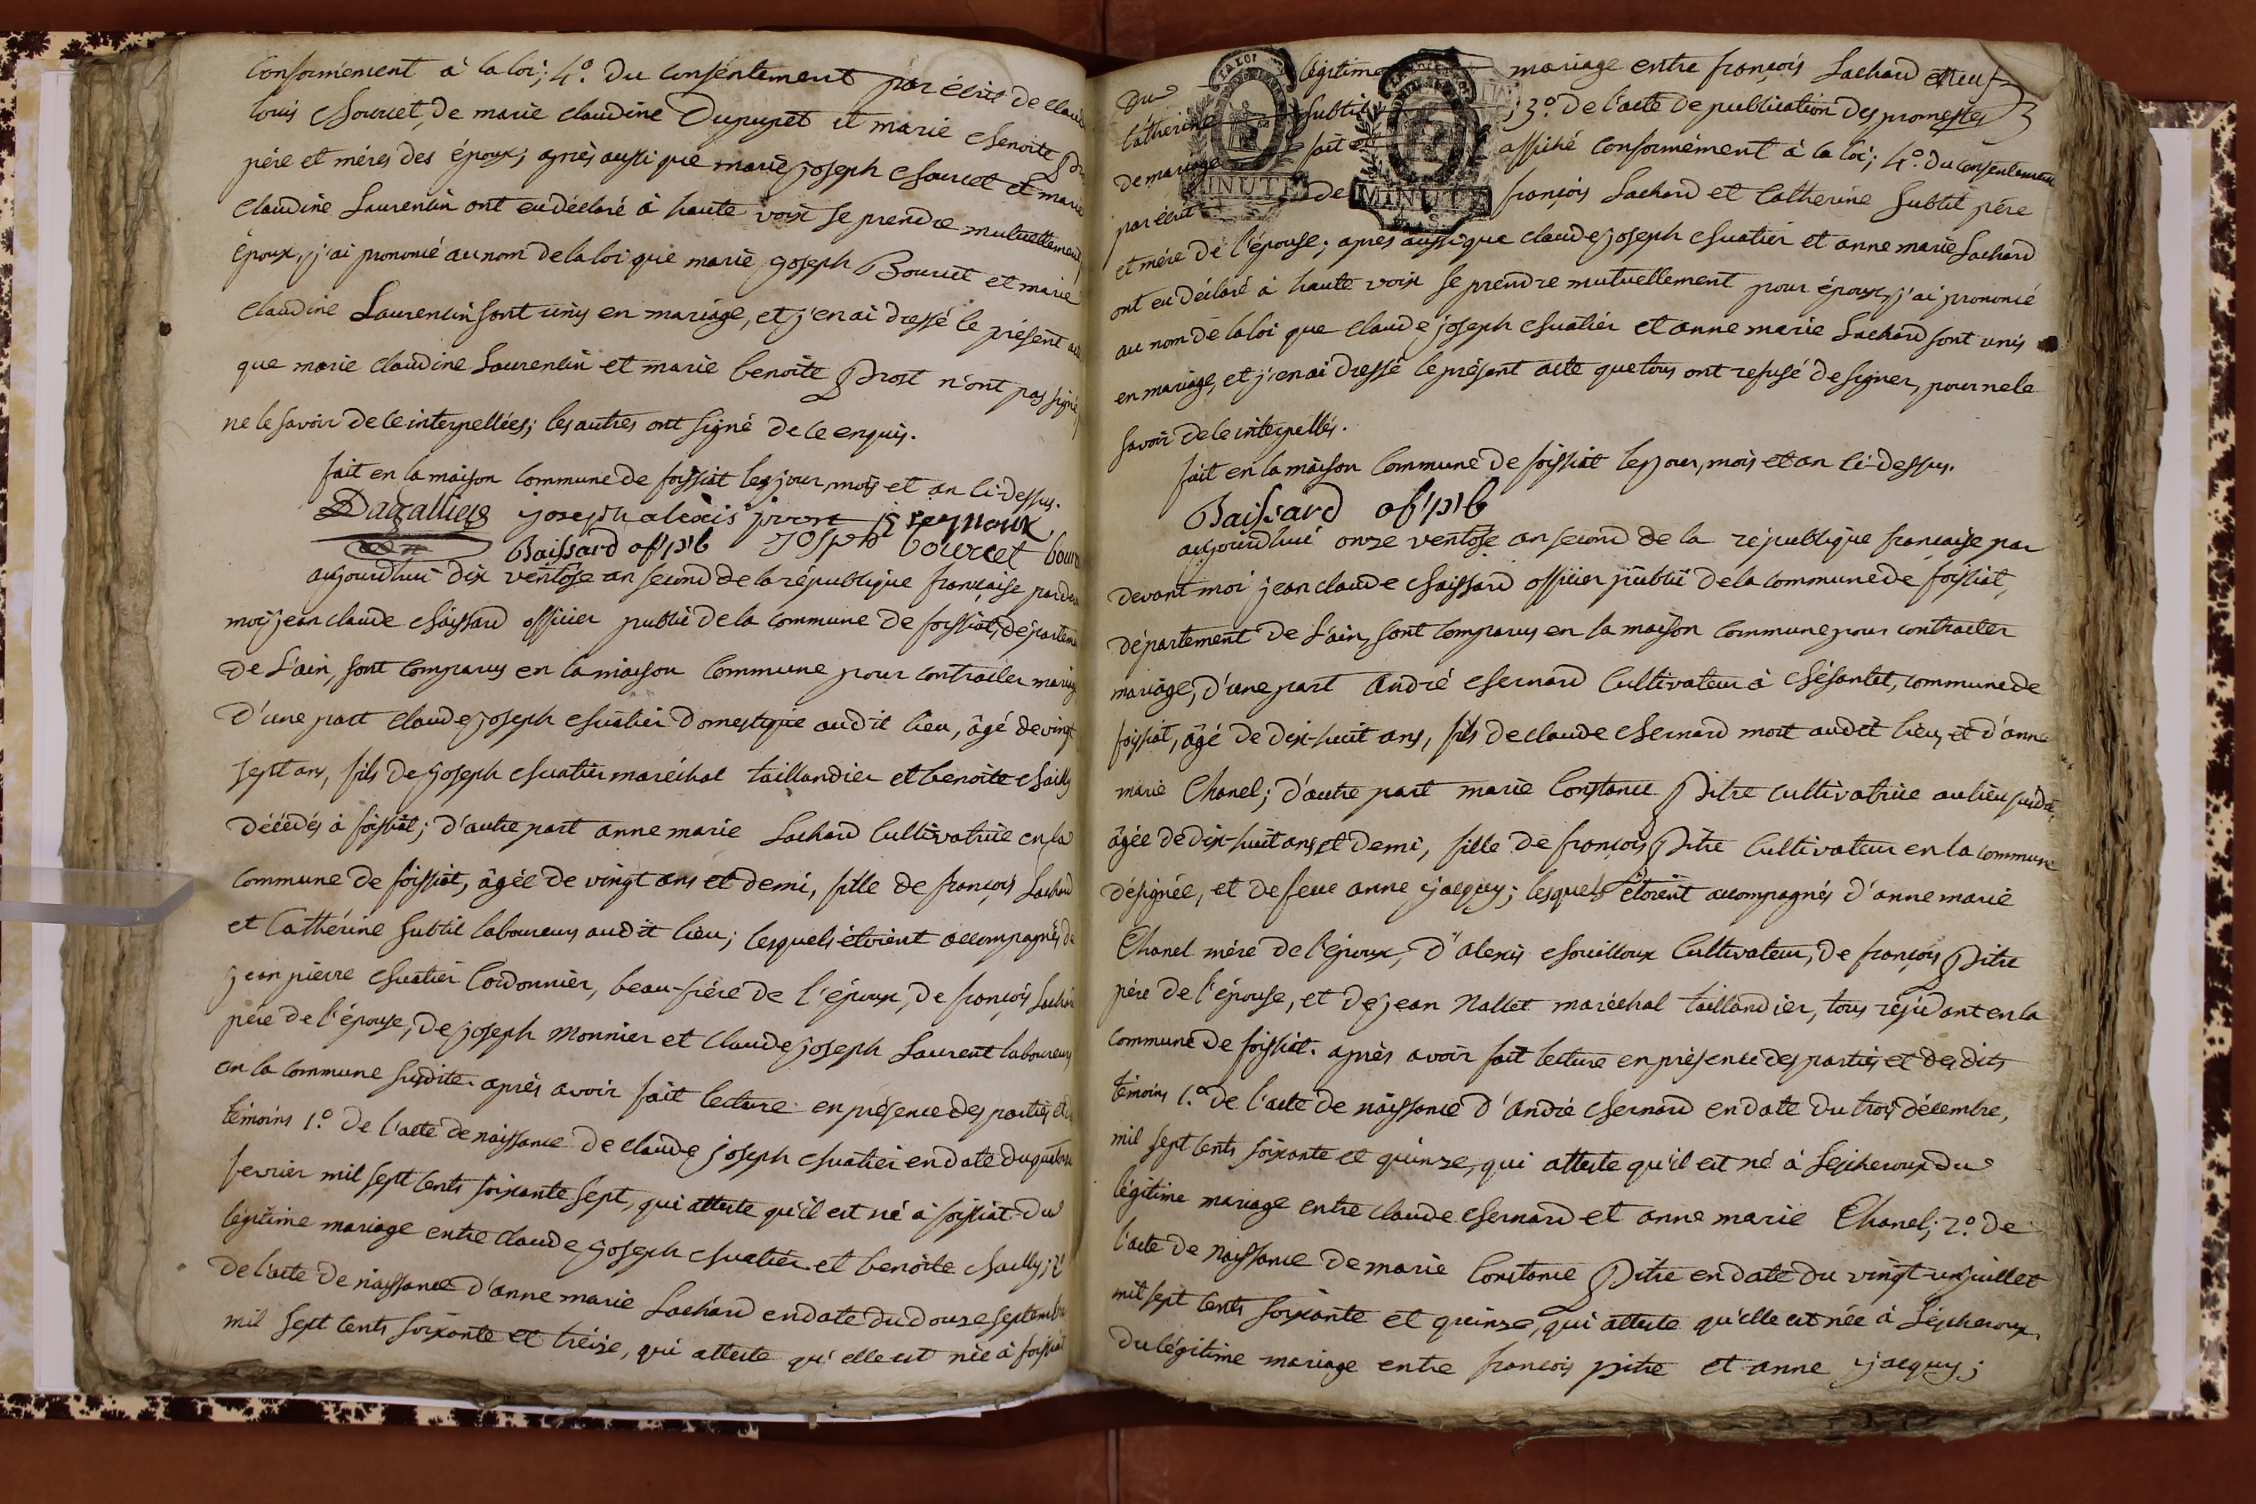 conformément à la loi; 4.º du consentement par écrit de claude
louis Bourcet, de marie claudine Dupupet et marie Benoite
père et méres des époux; après aussi que marie joseph Bourcet et marie
claudine Laurencin ont eu déclaré à haute voix se prendre mutuellement
époux, j'ai prononcé au nom de la loi que marie joseph Bourcet et marie
claudine Laurencin sont unis en mariage, et j'en ai dressé le présent acte
que marie claudine Laurencin et marie benoite Prost n'ont pas signé
ne le savoir de ce interpellées; les autres ont signé de ce enquis.
fait en la maison commune de foissiat les jour, mois et an ci-dessus.
Dagallier joseph alexis
Baissard of. p.b joseph bourcet
aujourdhui dix ventôse an second de la république française par de
moi jean claude Baissard officier public de la commune de foissiat, départeme
de L'ain, sont comparus en la maison commune pour contracter mariage
D'une part claude joseph Buatier domestique audit lieu, âgé de vingt
sept ans, fils de joseph Buatier maréchal taillandier et benoite Bailly
décédés à foissiat; d'autre part anne marie Lachard cultivatrice en la
commune de foissiat, âgée de vingt ans et demi, fille de françois Lachard
et Cathérine Subtil laboureurs audit lieu; lesquels étoient accompagnés de
jean pierre Buatier cordonnier, beau-frére de l'époux, de françois Lachard
père de l'épouse, de joseph Monnier et claude joseph Laurent laboureurs
en la commune susdite. après avoir fait lecture en présence des parties et
témoins 1.º de l'acte de naissance de claude joseph Buatier en date du quatorze
fevrier mil sept cents soixante sept, qui atteste qu'il est né à foissiat du
légitime mariage entre claude joseph Buatier et benoite Bailly; 2º
de l'acte de naissance d'anne marie Lachard en date du douze septembre
mil sept cents soixante et treize, qui atteste qu'elle est née à foissiat
du légitime mariage entre françois Lachard et
Catherine Subtil; 3.º de l'acte de publication des promesses
de mariage fait et affiché conformément à la loi; 4.º du consentement
par écrit de françois Lachard et Catherine Subtil père
et mére de l'épouse; après aussi que claude joseph Buatier et anne marie Lachard
ont eu déclaré à haute voix se prendre mutuellement pour époux, j'ai prononcé
au nom de la loi que claude joseph Buatier et anne marie Lachard sont unis
en mariage, et j'en ai dressé le présent acte que tous ont refusé de signer, pour ne le
savoir de ce interpellés.
fait en la maison commune de foissiat les jour, mois et an ci-dessus.
Baissard of. p.b
aujourdhui onze ventôse an second de la république française par
devant moi jean claude Baissard officier public de la commune de foissiat,
département de L'ain, sont comparus en la maison commune pour contracter
mariage, d'une part André Bernard cultivateur à Bésentet, commune de
foissiat, âgé de dix-huit ans, fils de claude Bernard mort audit lieu, et d'anne
marie Chanel; d'autre part marie Constance Pitre cultivatrice au lieu susdit,
âgée de dix-huit ans et demi, fille de françois Pitre cultivateur en la commune
désignée, et de feue anne jacquy; lesquels étoient accompagnés d'anne marie
Chanel mére de l'époux, d'alexis Bouilloux cultivateur, de françois Pitre
pére de l'épouse, et de jean Nallet maréchal taillandier, tous résidant en la
commune de foissiat. après avoir fait lecture en présence des parties et desdits
témoins 1.º de l'acte de naissance d'andré Bernard en date du trois décembre,
mil sept cents soixante et quinze, qui atteste qu'il est né à Lescheroux du
légitime mariage entre claude Bernard et anne marie Chanel; 2.º de
l'acte de naissance de marie Constance Pitre en date du vingt-un juillet
mil sept cents soixante et quinze, qui atteste qu'elle est née à Lescheroux
du légitime mariage entre françois pitre et anne jacquy;
LA LOI
MINUTE
MINUTE